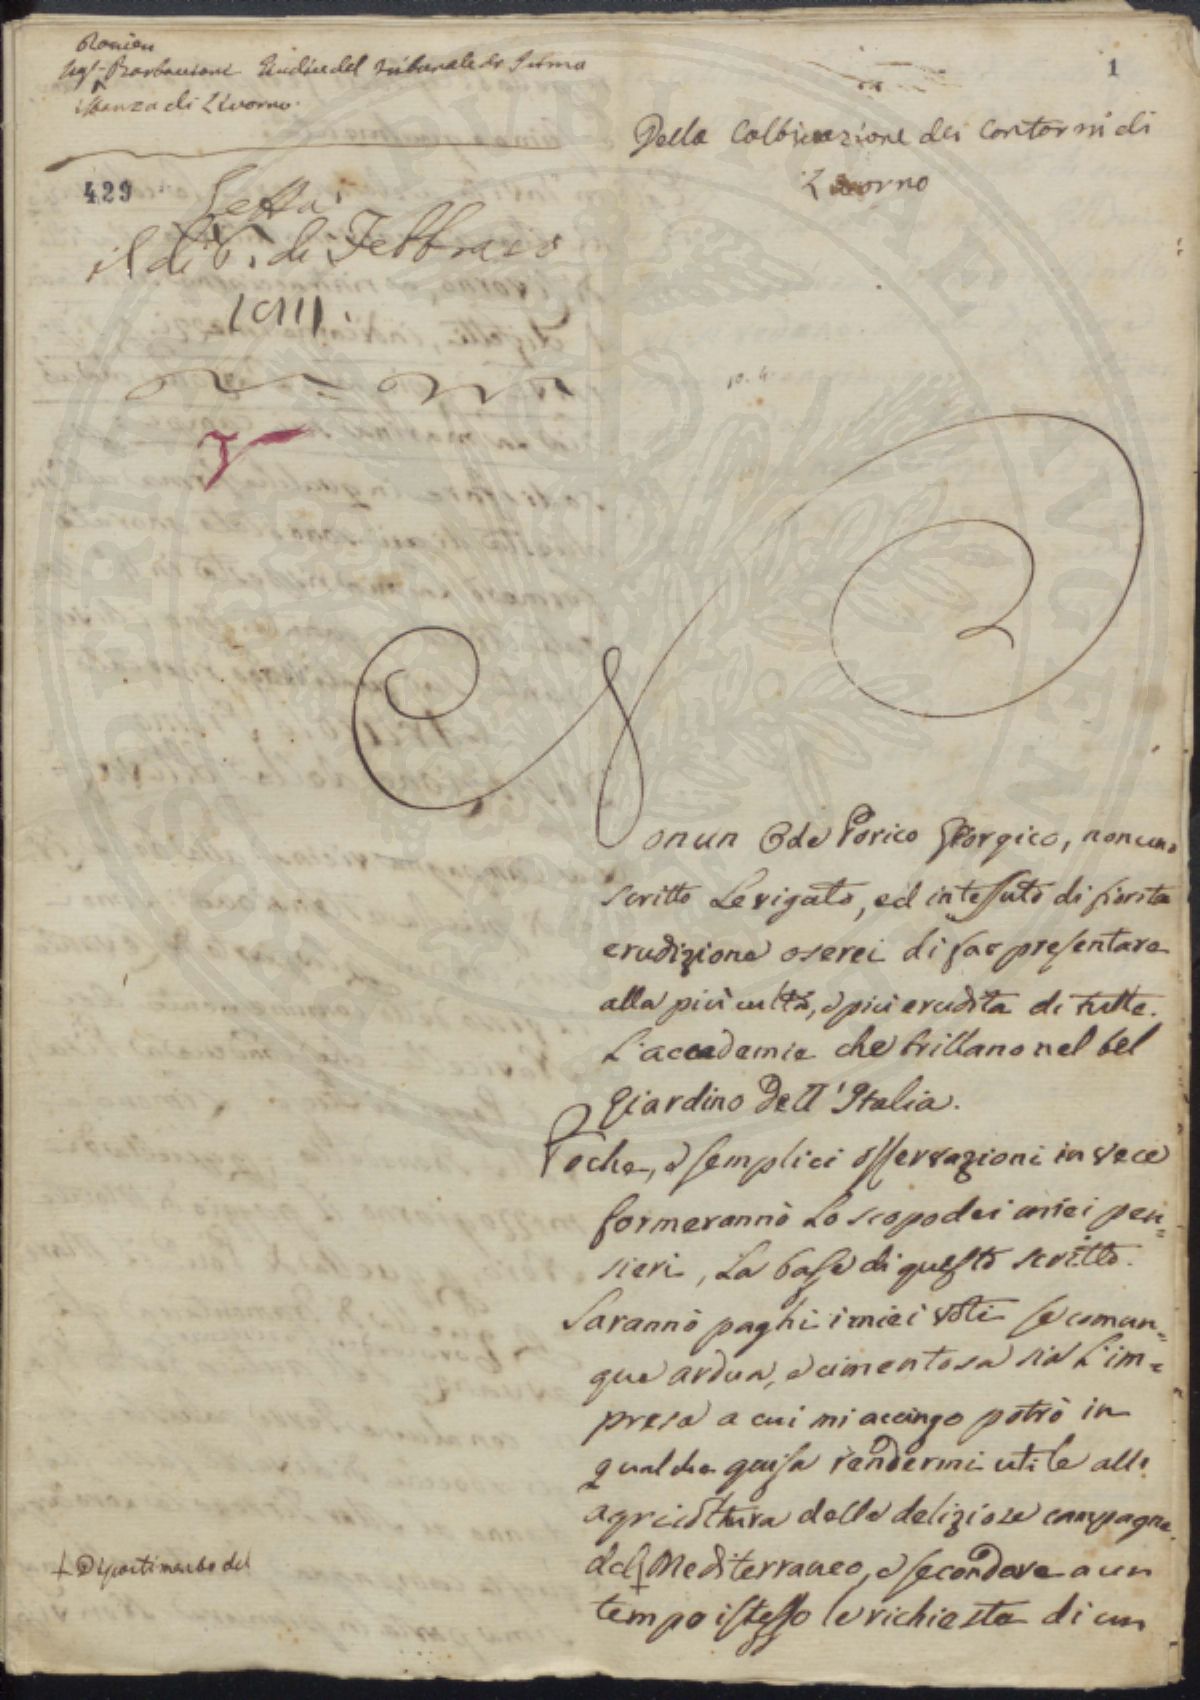 Ranieri
Sig.r Barbacciani Giudice del Tribunale di Prima
istanza di Livorno.
1
Della Coltivazione dei Contorni di
Livorno
429
Letta
il dì 6. di Febbraio
1811.
Non un Ode Lorico Georgico, non uno
scritto Levigato, ed intessuto di fiorita
erudizione oserei di far presentare
alla più culta, e più erudita di tutte
L'accademie che brillano nel bel
Giardino Dell'Italia.
Poche, e semplici osservazioni in vece
formeranno Lo scopo dei miei pen=
sieri, La base di questo scritto.
Saranno paghi i miei voti se comun=
que ardua, e cimentosa sia L'im=
presa a cui mi accingo potrò in
qualche guisa rendermi utile alla
agricoltura delle deliziose campagne
del Mediterraneo, e secondare a un
tempo istesso le richieste di un
+ Dipartimento del